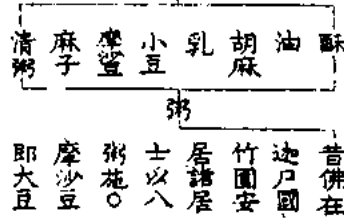 酥
油
胡麻
乳
小豆
摩
麻子
清粥
粥
昔佛在
迦尸國
竹園安
居諸居
士以八
粥施○
摩沙豆
即大豆